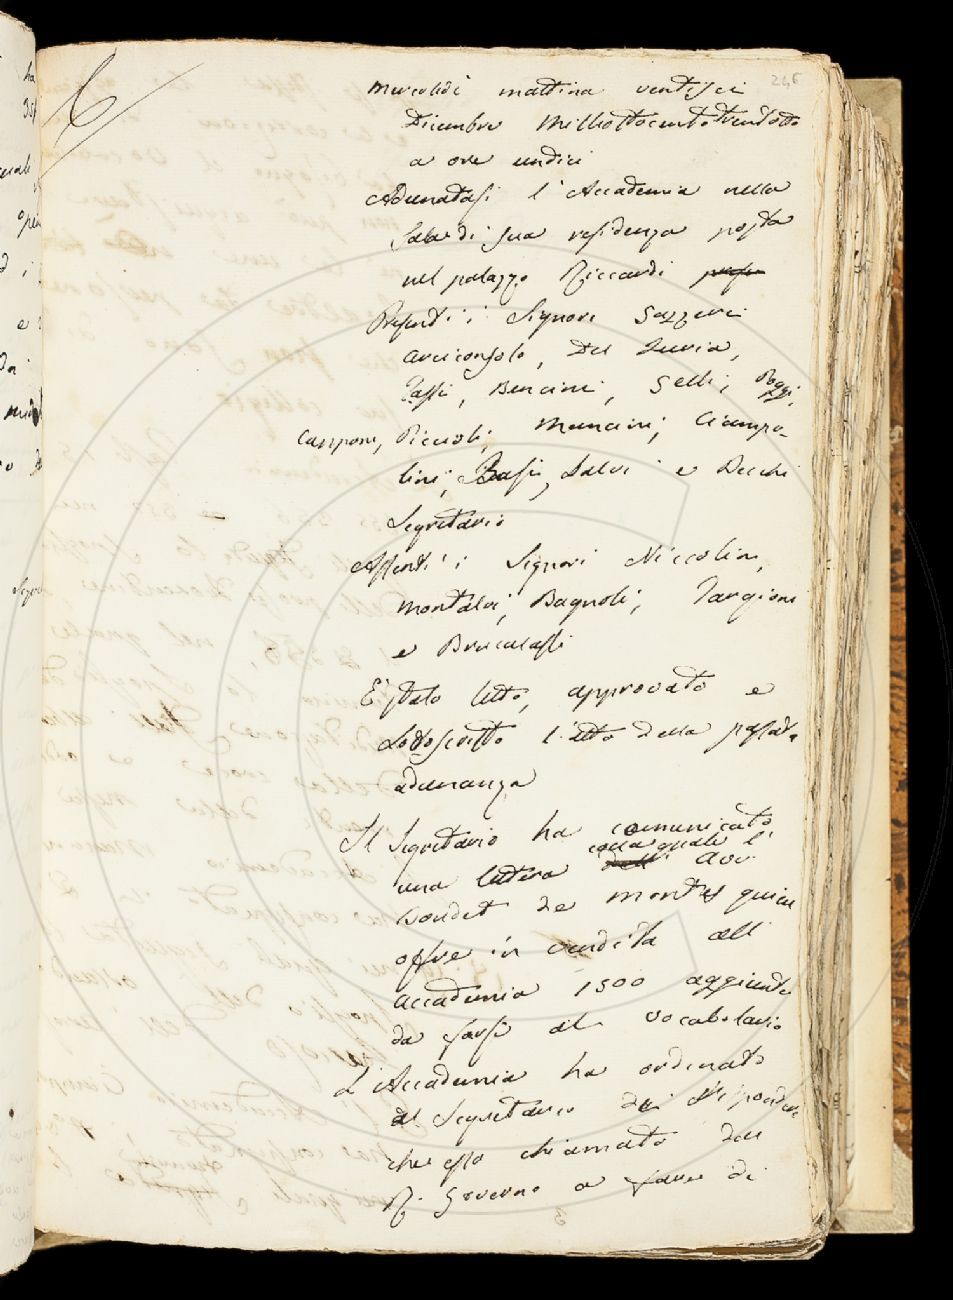 246
Mercoledi mattina ventisei
Dicembre Milleottocentotrentotto
a ore undici
Adunatasi l'Accademia nella
Sala di sua residenza posta
nel palazzo Riccardi
Presenti i Signori Gazzeri
Arciconsolo, Del Furia,
Tassi, Bencini, Gelli, Poggi,
Capponi, Piccioli, Mancini, Ciampo-
lini, Basi, Salvi e Becchi
Segretario
Assenti i Signori Niccolini,
Montalvi, Bagnoli, Targioni
e Brucalassi
È stato letto, approvato e
Sottoscritto l'atto della passata
adunanza
Il Segretario ha comunicato
una lettera colla quale l'Avv.
de
offre in vendita all'
Accademia 1500 aggiunte
da farsi al Vocabolario
L'Accademia ha ordinato
al Segretario di rispondere
che essa chiamata dal
R. Governo a fare di